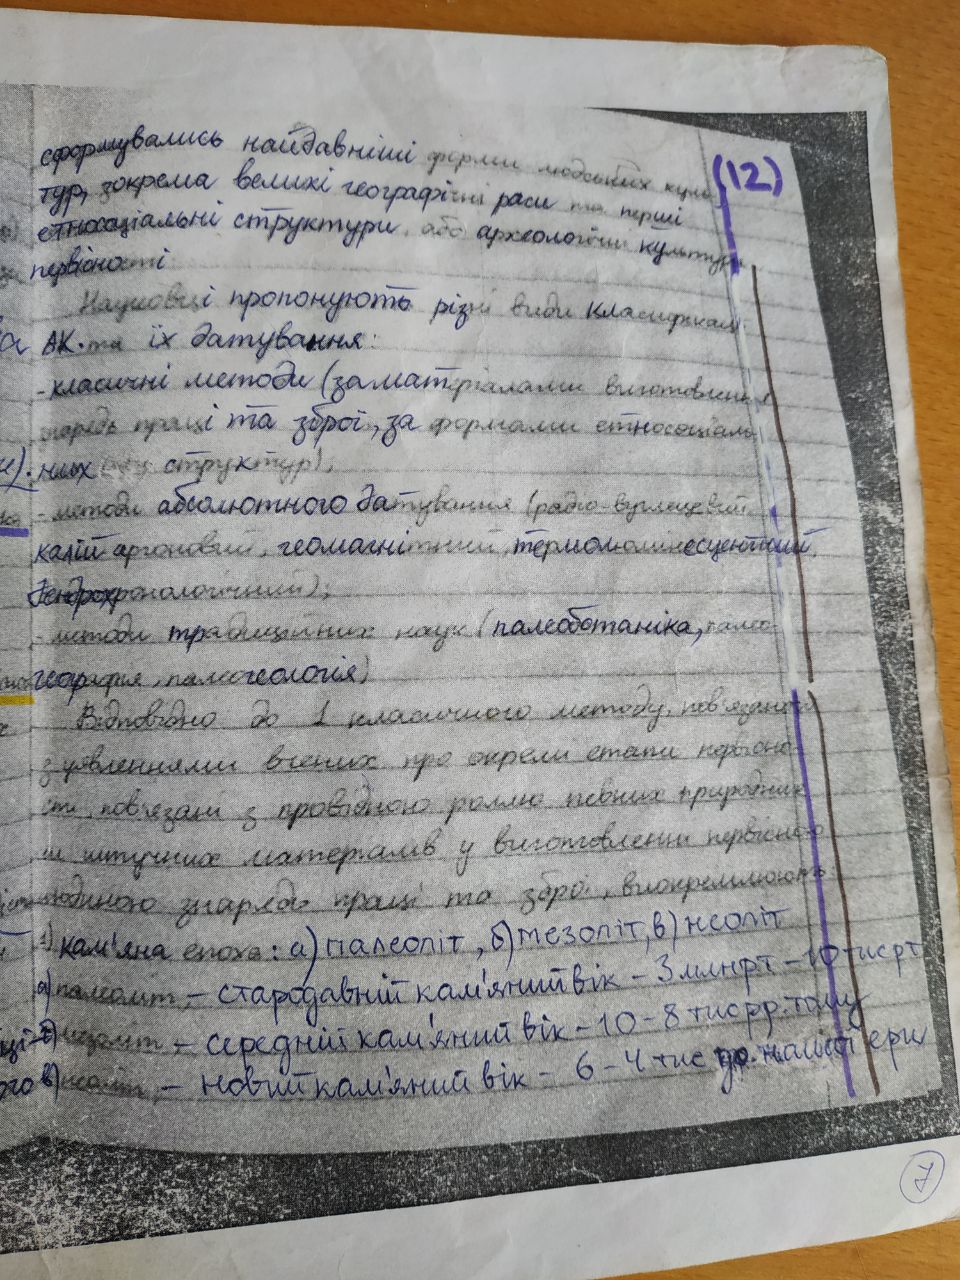 (12)
сформувались найдавніші форми людських куль
тур, зокрема великі географічні раси та перші
етносоціальні структури, або археологічні культури
первісності.
Науковці пропонують різні види класифікації
АК. та їх датування:
- класичні методи (за матеріалами виготовлення
знарядь праці та зброї, за формами етносоціаль
них структур);
- методи абсолютного датування (радіо-вуглецевий
калій аргоновий, геомагнітний, термолюмінесцентний,
дендрохронологічний);
- методи традиційних наук (палеоботаніка, палео
географія, палеогеологія)
Відповідно до 1 класичного методу, пов'язаного
з уявленнями вчених про окремі етапи первісно
сті, пов'язані з провідною роллю певних природних
чи штучних матеріалів у виготовленні первісною
людиною знарядь праці та зброї, виокремлюють:
1) кам'яна епоха: а) палеоліт, б) мезоліт, в) неоліт
а) палеоліт – стародавній кам'яний вік – 3 млн рт – 10 тис рт
б) мезоліт – середній кам'яний вік – 10 – 8 тис рр. тому
в) неоліт – новий кам'яний вік – 6 – 4 тис до нашої ери
7